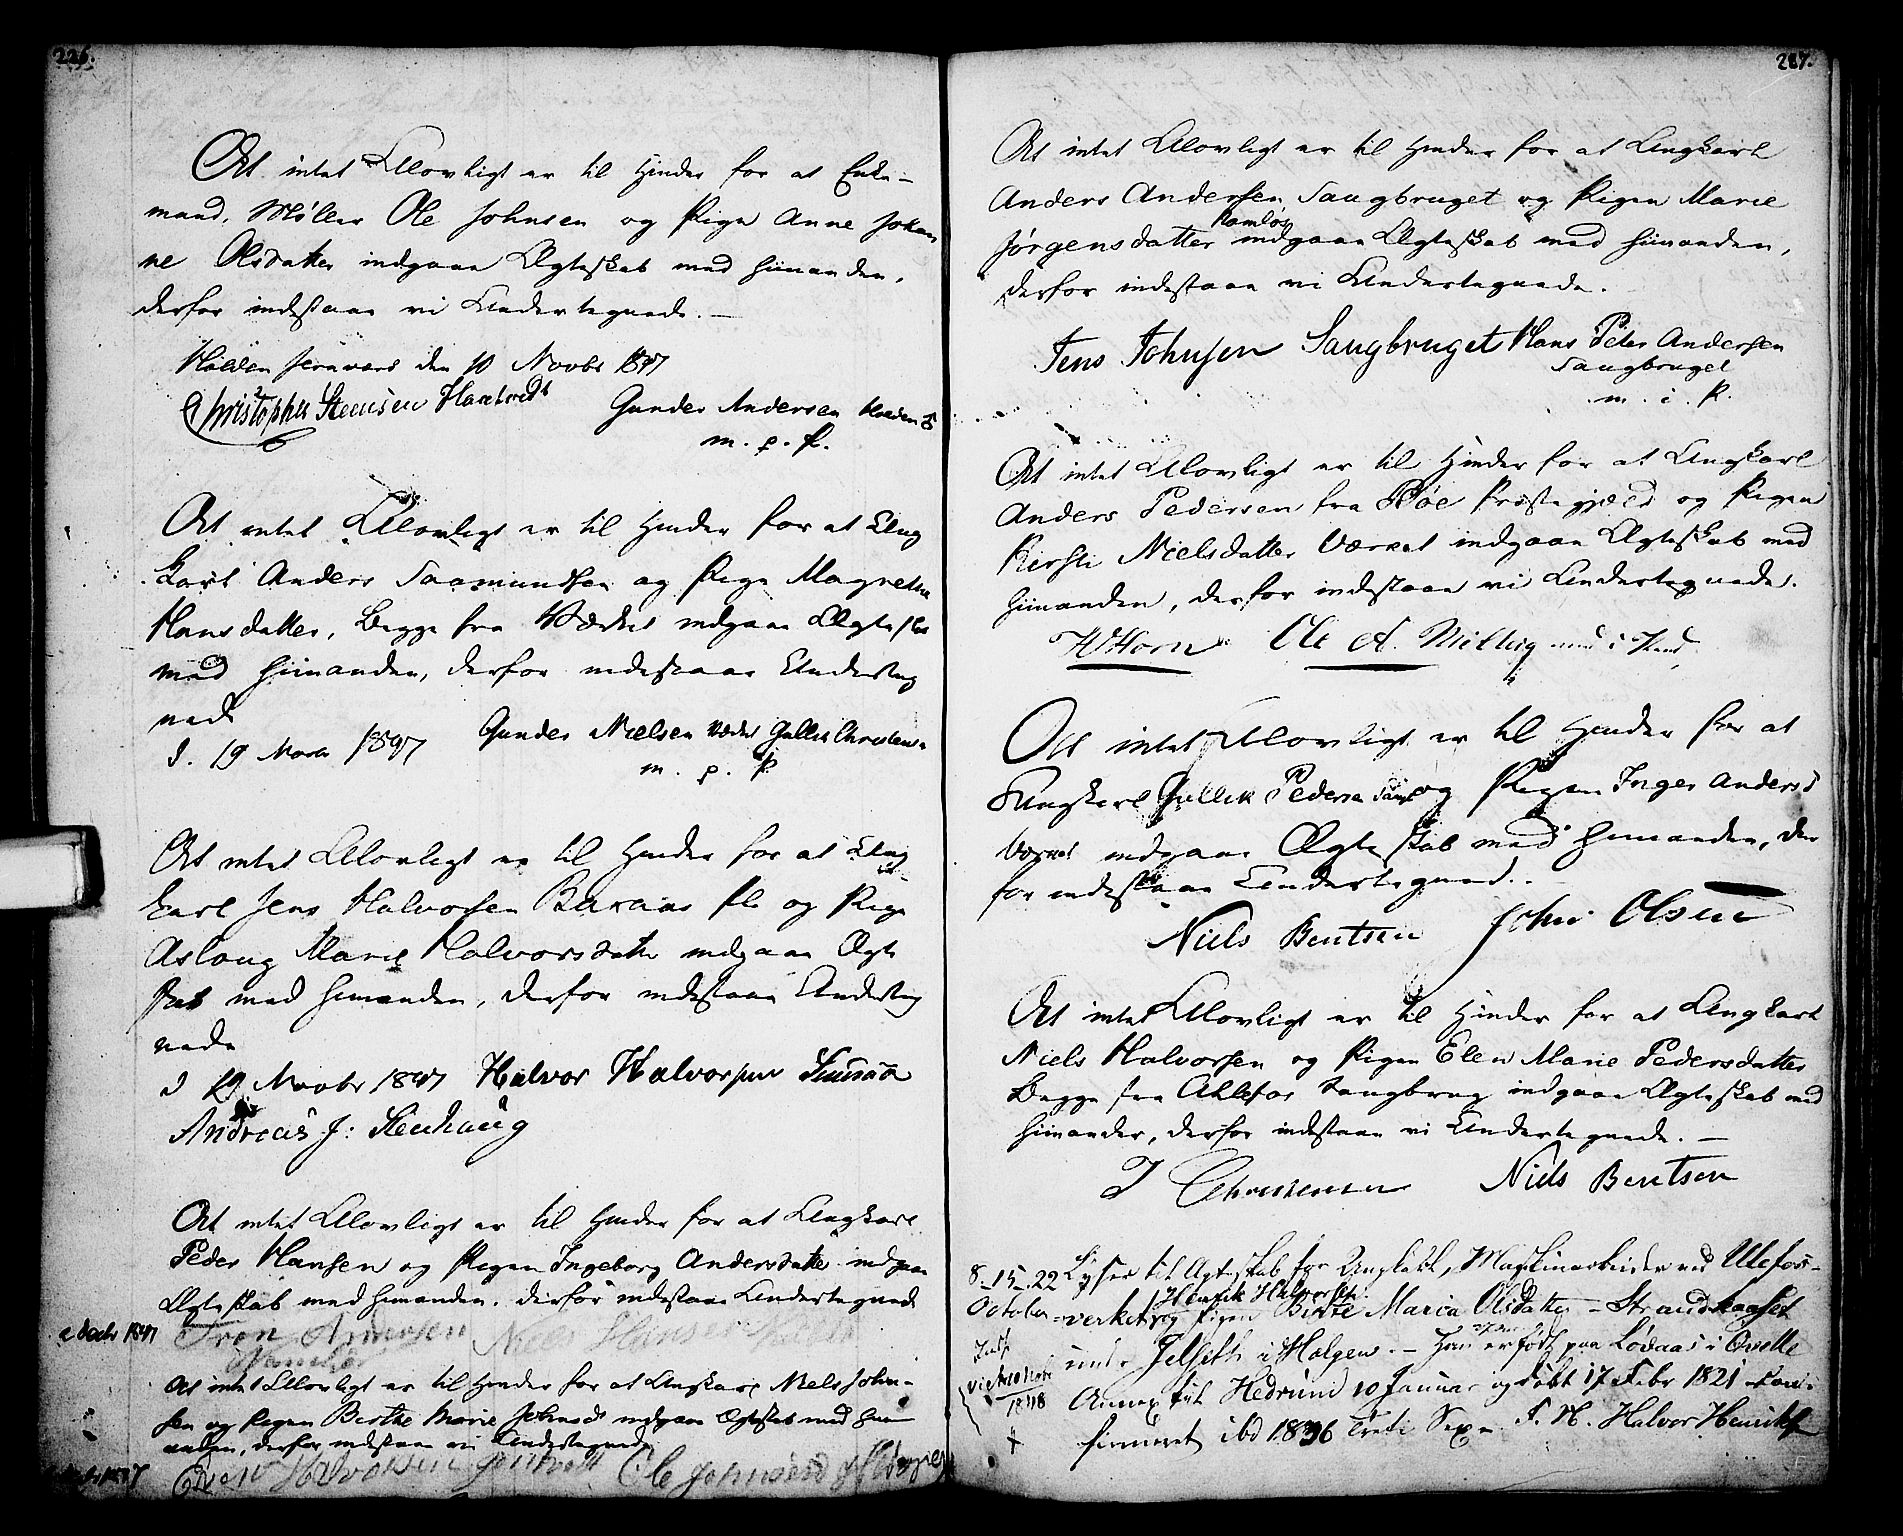 226.
At intet Ulovligt er til Hinder for at Enke-
mand, Møller Ole Johnsen og Pige Anne Johan
ne Olsdatter indgaae Ægteskab med hinanden,
derfor indestaae vi Undertegnede. —
Holden Jernværk den 10 Novbr 1847
Christopher Steensen Gunder Andersen Holden
m. p. P.
At intet Ulovligt er til Hinder for at Ung
karl Anders Saamundsen og Pige Magrethe
Hansdatter, Begge fra Værket indgaae Ægteskab
med hinanden, derfor indestaae Underteg
nede
d. 19 Novbr 1847 Gunder Nielsen Værket Gullik Christens.
m. p. P.
At intet Ulovligt er til Hinder for at Ung
karl Jens Halvorsen og Pige
Aslaug Marie Halvorsdatter indgaae Ægte
skab med hinanden, derfor indestaae Underteg
nede
d 19 Novbr 1847 Halvor Halvorsen
Andreas J: Stenhaug
At intet Ulovligt er til Hinder for at Ungkarl
Peder Hansen og Pigen Ingeborg Andersdatter indgaae
Ægteskab med hinanden. derfor indestaae Undertegnede
Decbr 1847 Niels Hansen
At intet Ulovligt er til Hinder for at Ungkarl Niels John-
sen og Pigen Berthe Marie Johnsd indgaae Ægteskab med hin
anden, derfor indestaae vi Undertegnede
Halvorsen Ole Johnsen
227.
At intet Ulovligt er til Hinder for at Ungkarl
Anders Andersen Saugbruget og Pigen Marie
Jørgensdatter Romløs indgaae Ægteskab med hinanden,
derfor indestaae vi Undertegnede.
Jens Johnsen Saugbruget Hans Peter Andersen
Saugbruget
m. i. P.
At intet Ulovligt er til Hinder for at Ungkarl
Anders Pedersen fra Præstegjæld og Pigen
Kirsti Nielsdatter Værket indgaae Ægteskab med
hinanden, derfor indestaae vi Undertegnede.
Horn Ole A. med i Pend
At intet Ulovligt er til Hinder for at
Ungkarl Gullik Pedersen og Pigen Inger Andersd
Værket indgaae Ægteskab med hinanden, der
for indestaae Undertegned.
Niels Bentsen John Olsen
At intet Ulovligt er til Hinder for at Ungkarl
Niels Halvorsen og Pigen Elen Marie Pedersdatter
Begge fra Ulefos Saugbrug indgaae Ægteskab med
hinanden, derfor indestaae vi Undertegnede. —
J Christensen Niels Bentsen
8. 15. 22 Lyser til Ægteskab for Ungkarl, Maskinarbeider ved Ulefos-
October verket Henrik Halvorsen og Pigen Birte Maria Olsdatter — Strandkaaset
under Jelseth i Holgen. — Han er født paa Lødaas i Qvelle
Viet Annex til Hedrum 10 Januar og døbt 17 Febr 1821 con-
1848 firmeret ibd 1836 F. H. Halvor Henriks